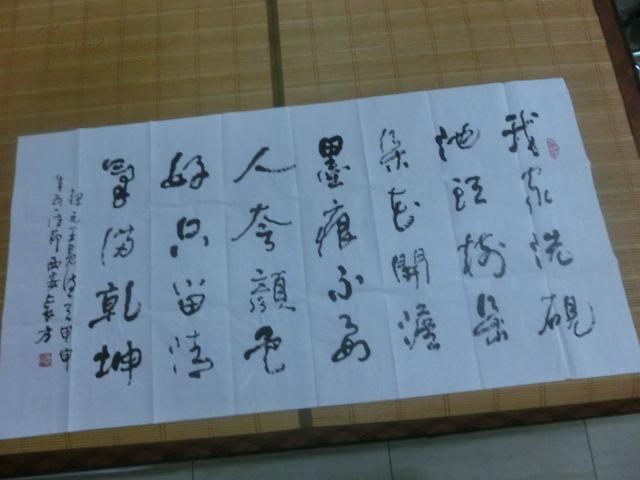 我家洗硯
池頭樹朵
朵花開澹
墨痕不要
人夸顏色
好只留清
氣滿乾坤
錄元王冕詩甲申